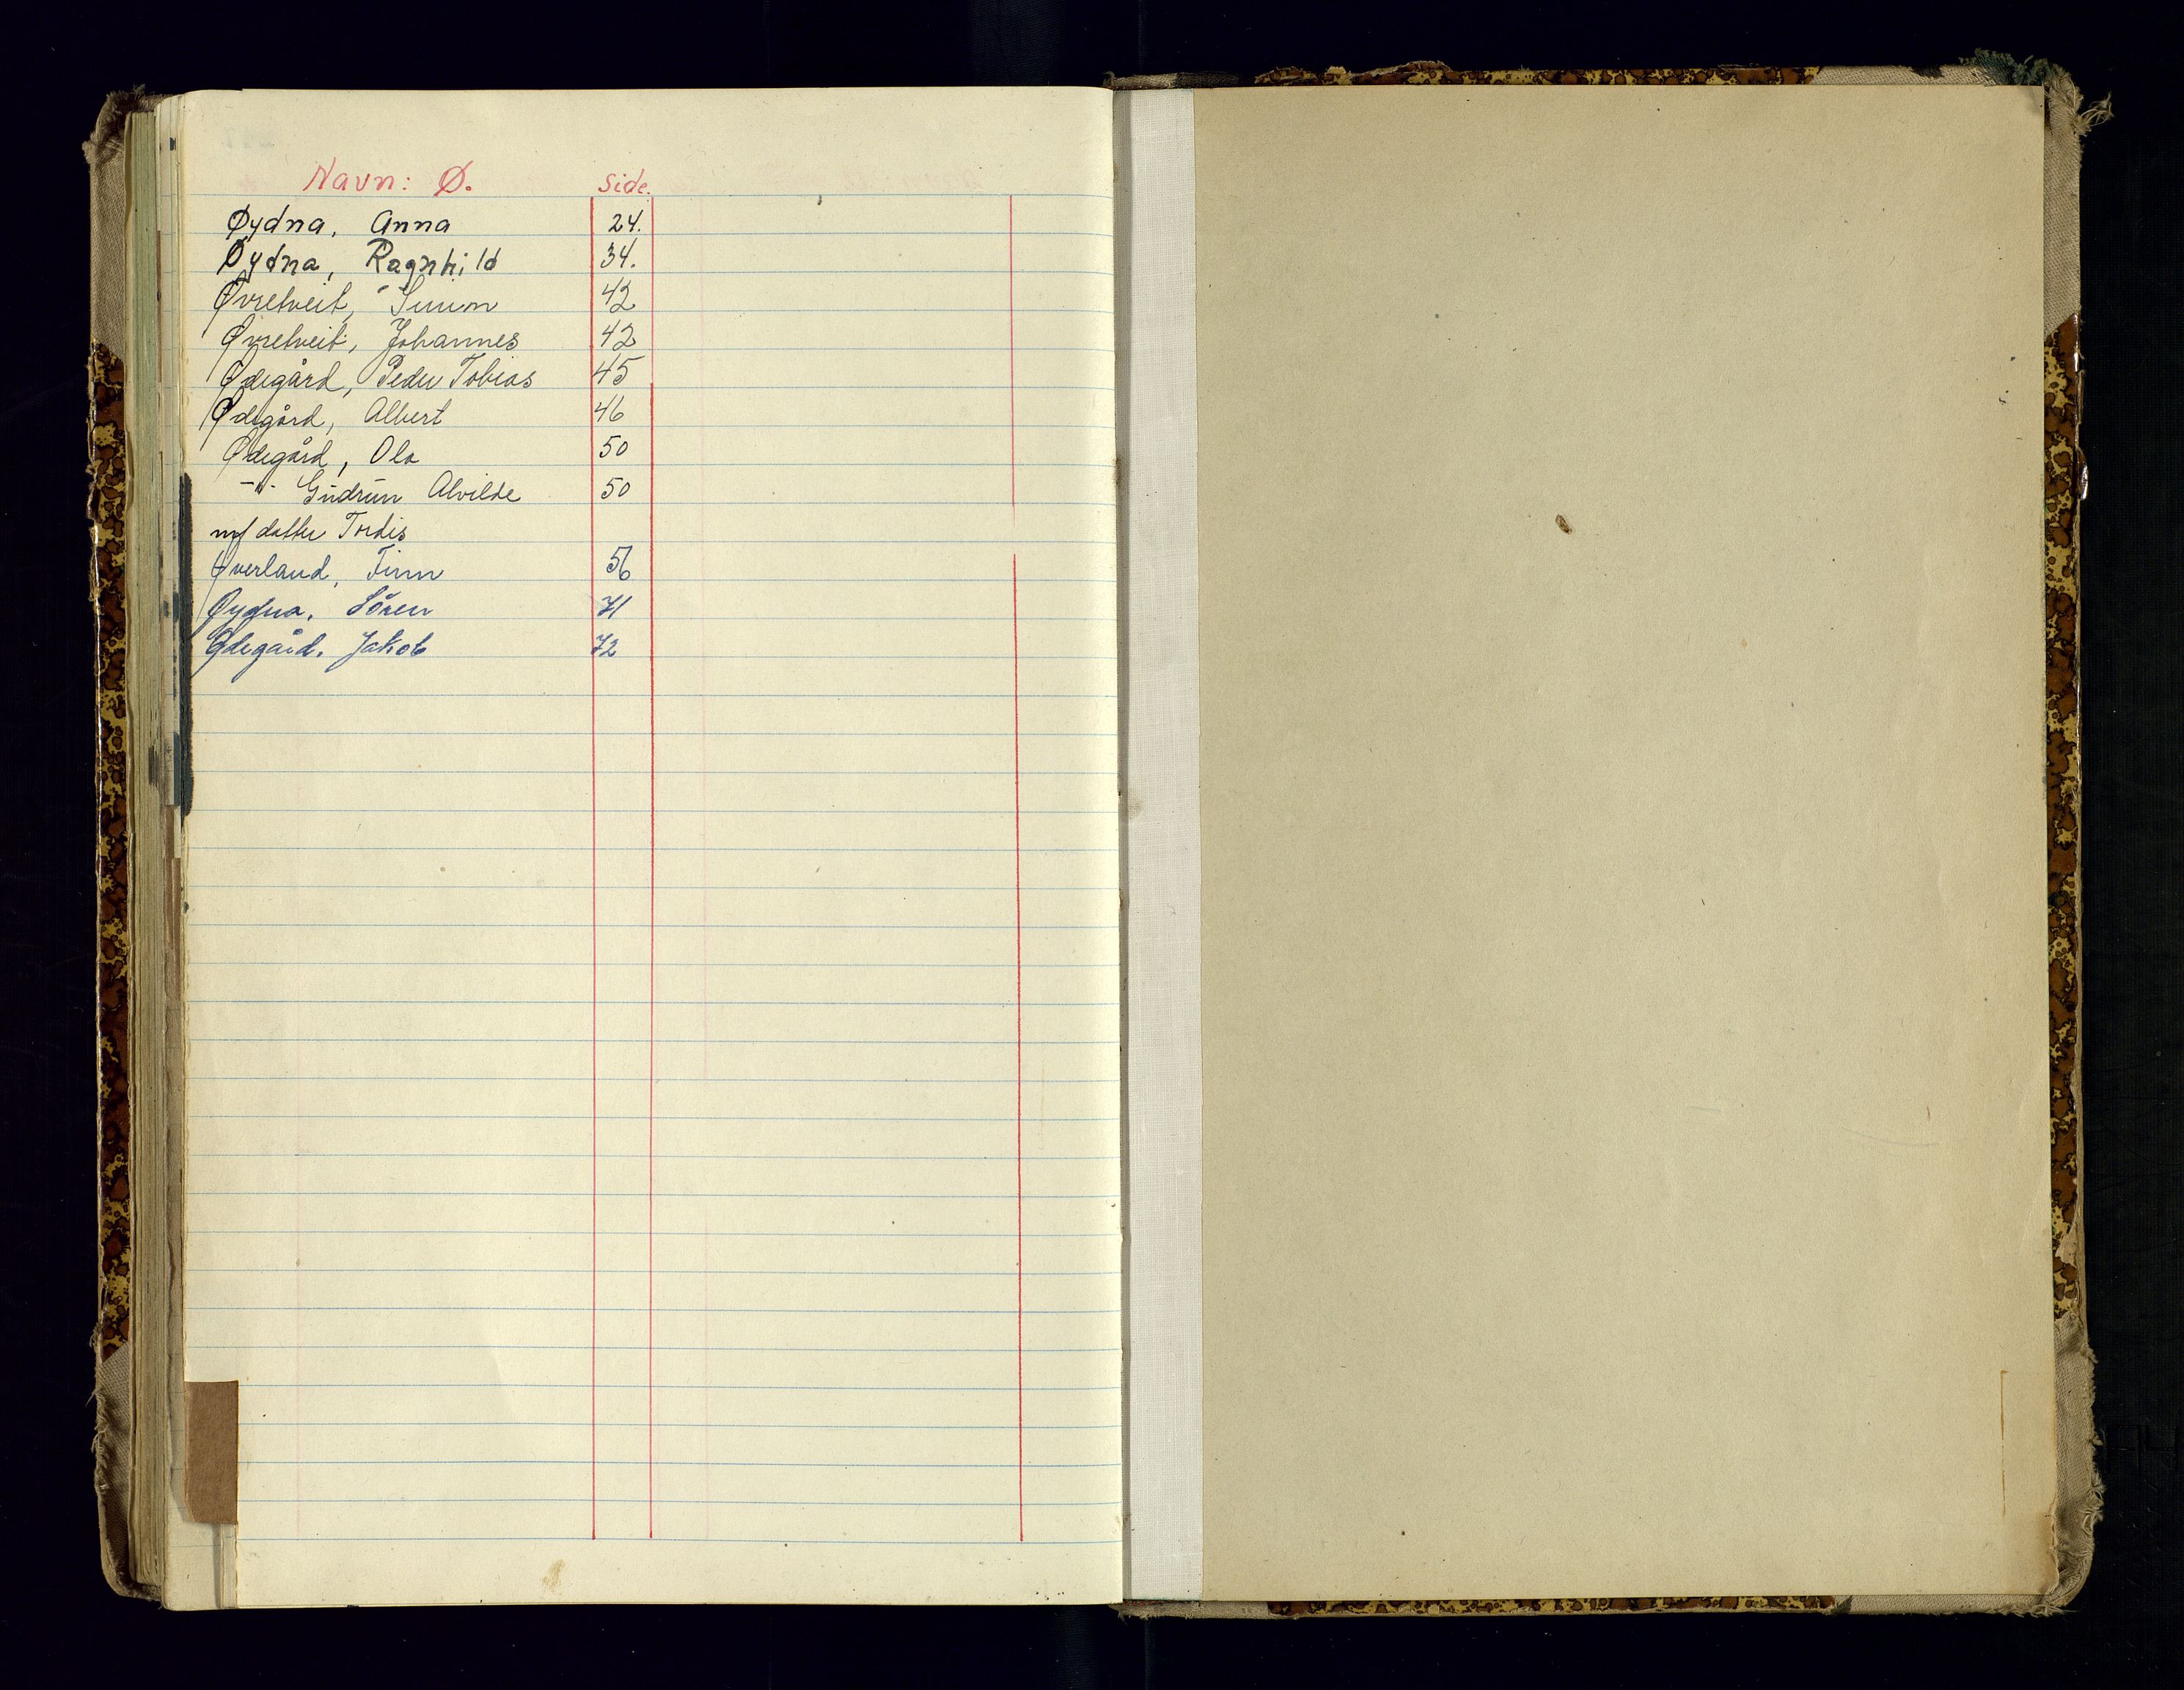 Navn: Ø. Side.
Øydna, Anna 24.
Øydna, Ragnhild 34.
Øvretveit, Simon 42
Øvretveit, Johannes 42
Ødegård, Peder Tobias 45
Ødegård, Albert 46
Ødegård, Ola 50
-"- Gudrun Alvilde 50
m/ datter Tordis
Øverland, Finn 56
Øydna. Sören 71
Ødegård. Jakob 72